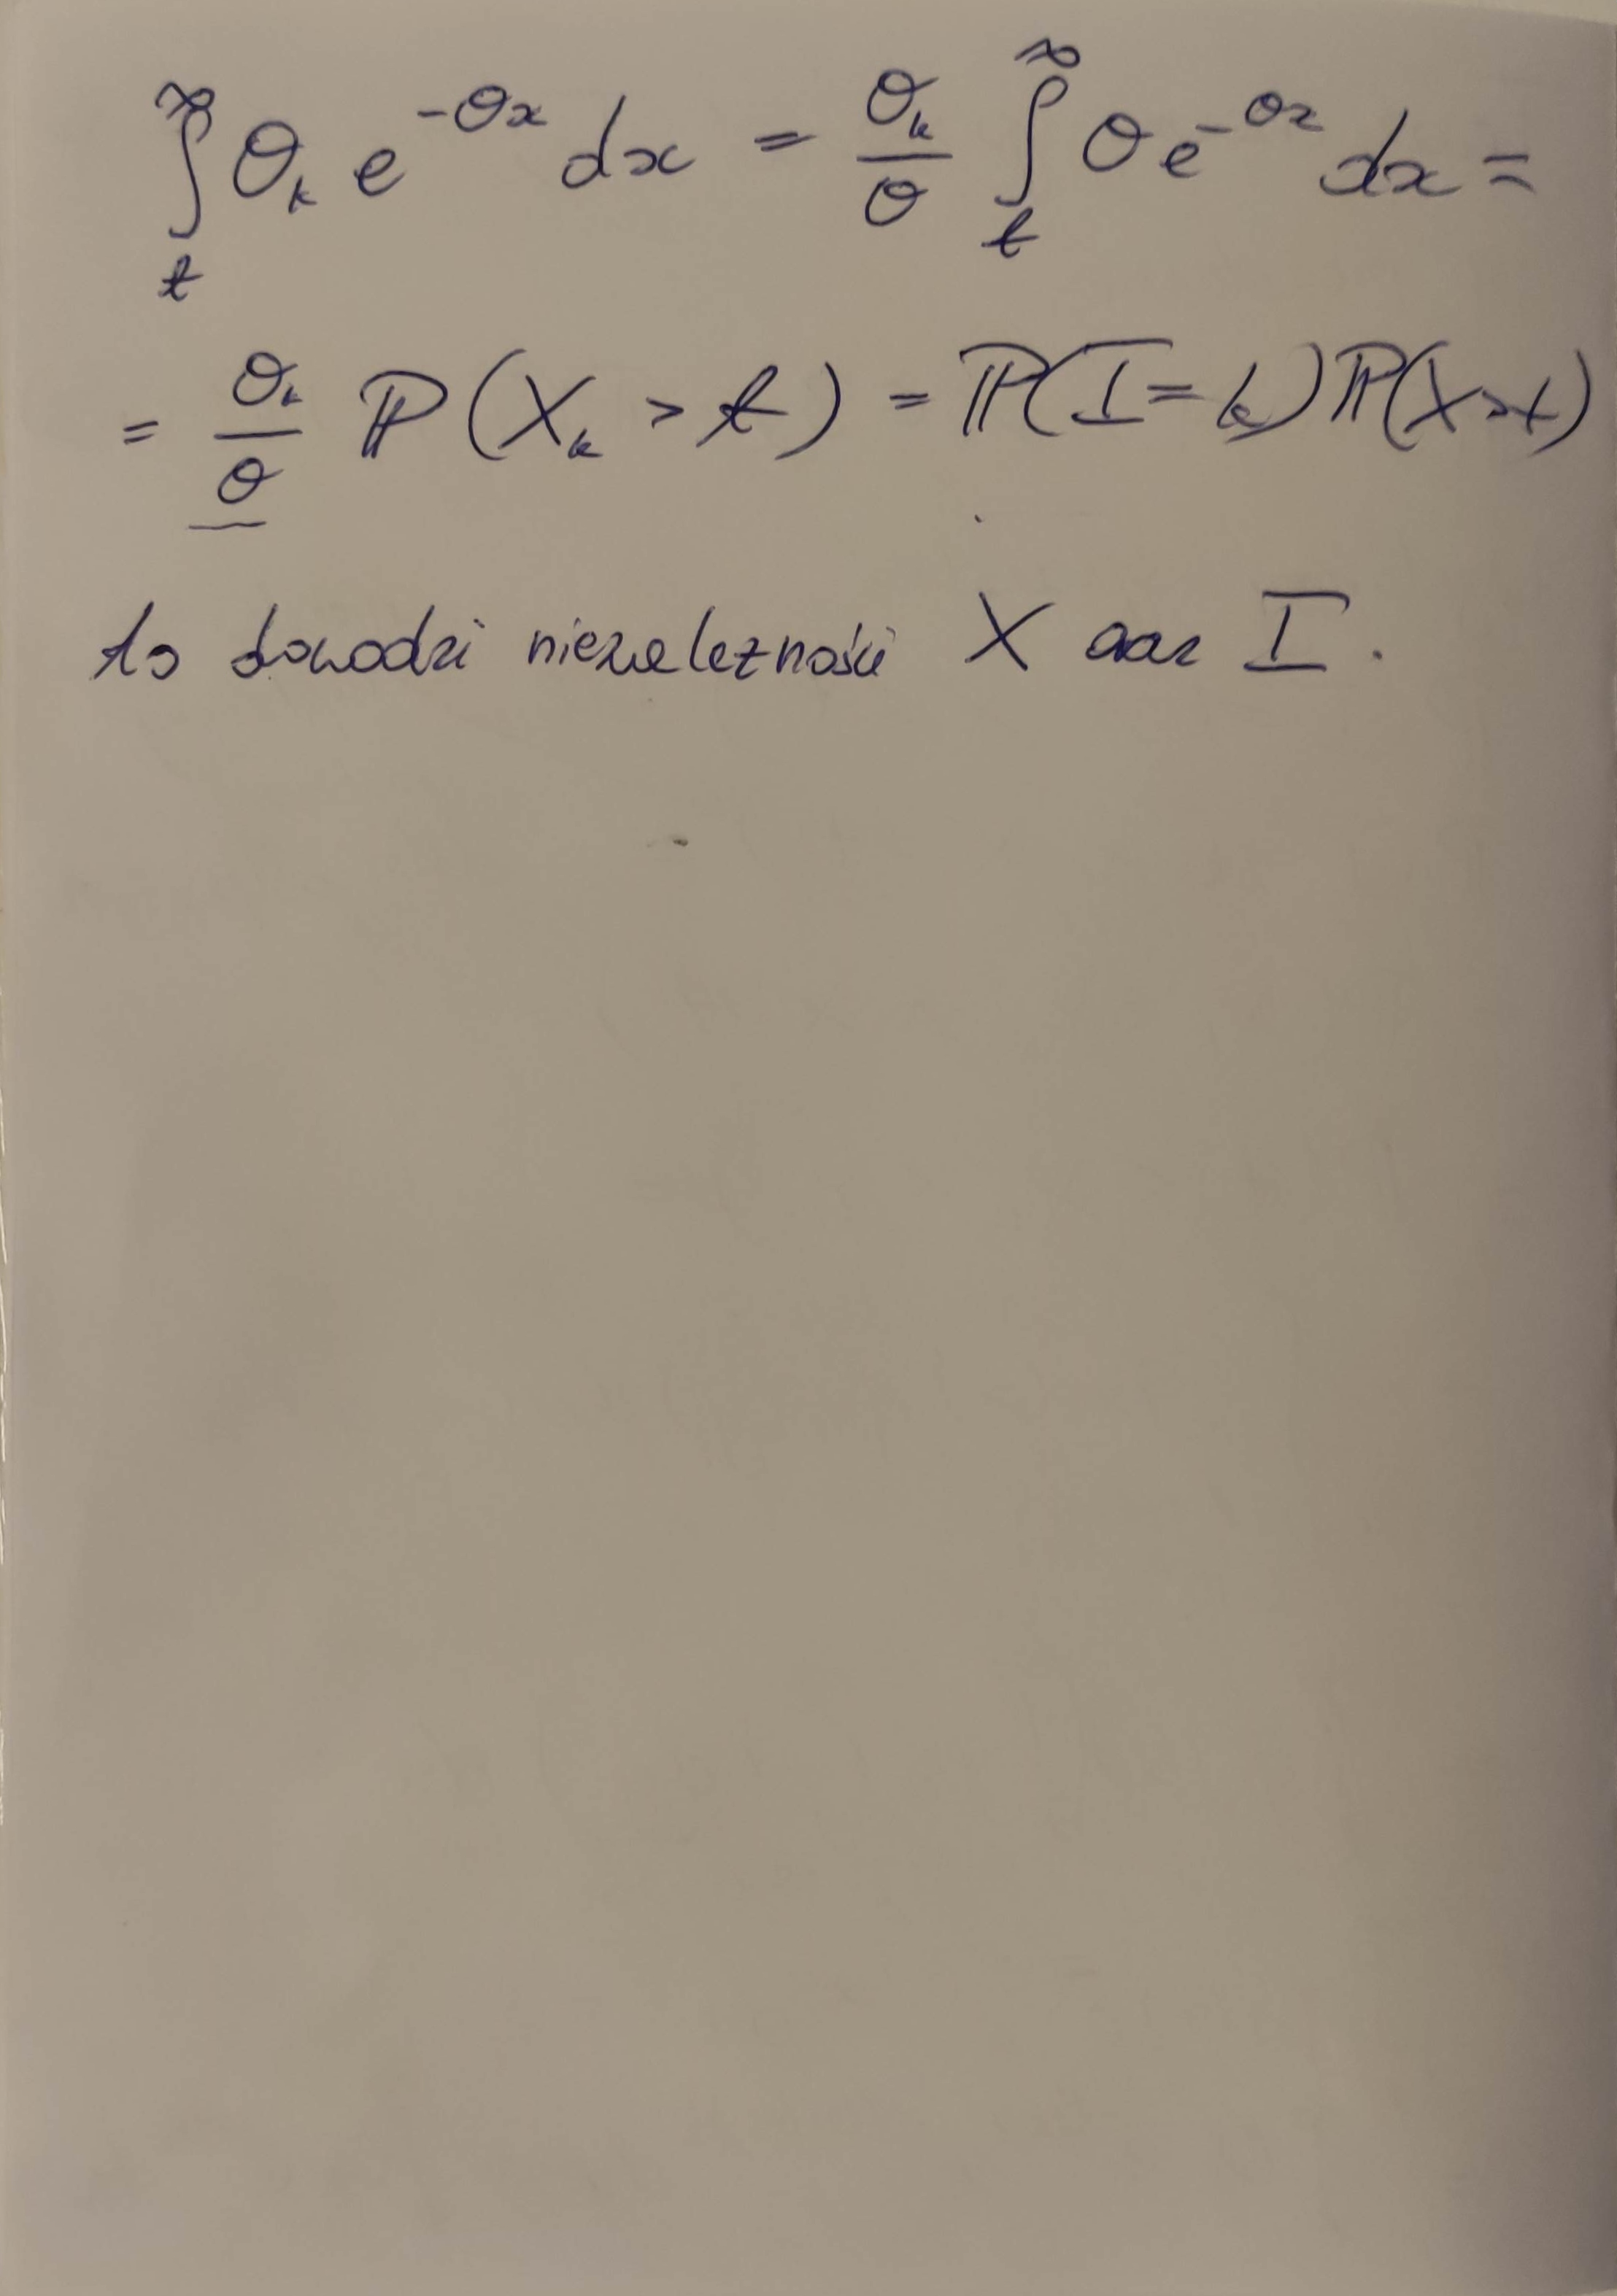 ∫_t^∞ θ_k e^{-θx} dx = θ_k/θ ∫_t^∞ θ e^{-θx} dx =
= θ_k/θ ℙ(X_k > t) = ℙ(I = k) ℙ(X > t)
to dowodzi niezależności X oraz I.